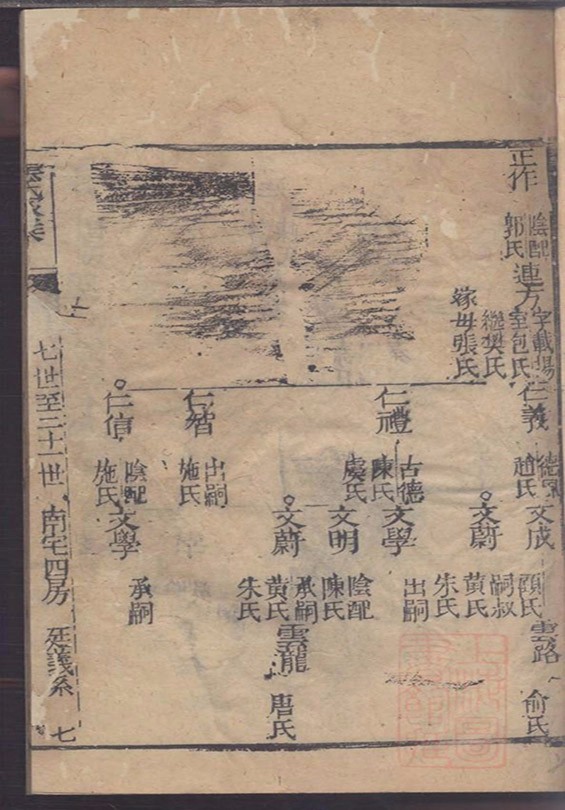 正作
陰配
郭氏
連方
字載揚
室包氏
繼奠氏
嫁母張氏
仁義
趙氏
文成
顧氏
雲路
俞氏
文蔚
嗣叔
黄氏
朱氏
仁禮
古德
陳氏
虞氏
文學
出嗣
文明
陰配
陳氏
文蔚
承嗣
黄氏
朱氏
雲龍
唐氏
仁智
出嗣
施氏
仁信
陰配
施氏
文學
承嗣
七世至二十一世 南宅四房 延義系 七